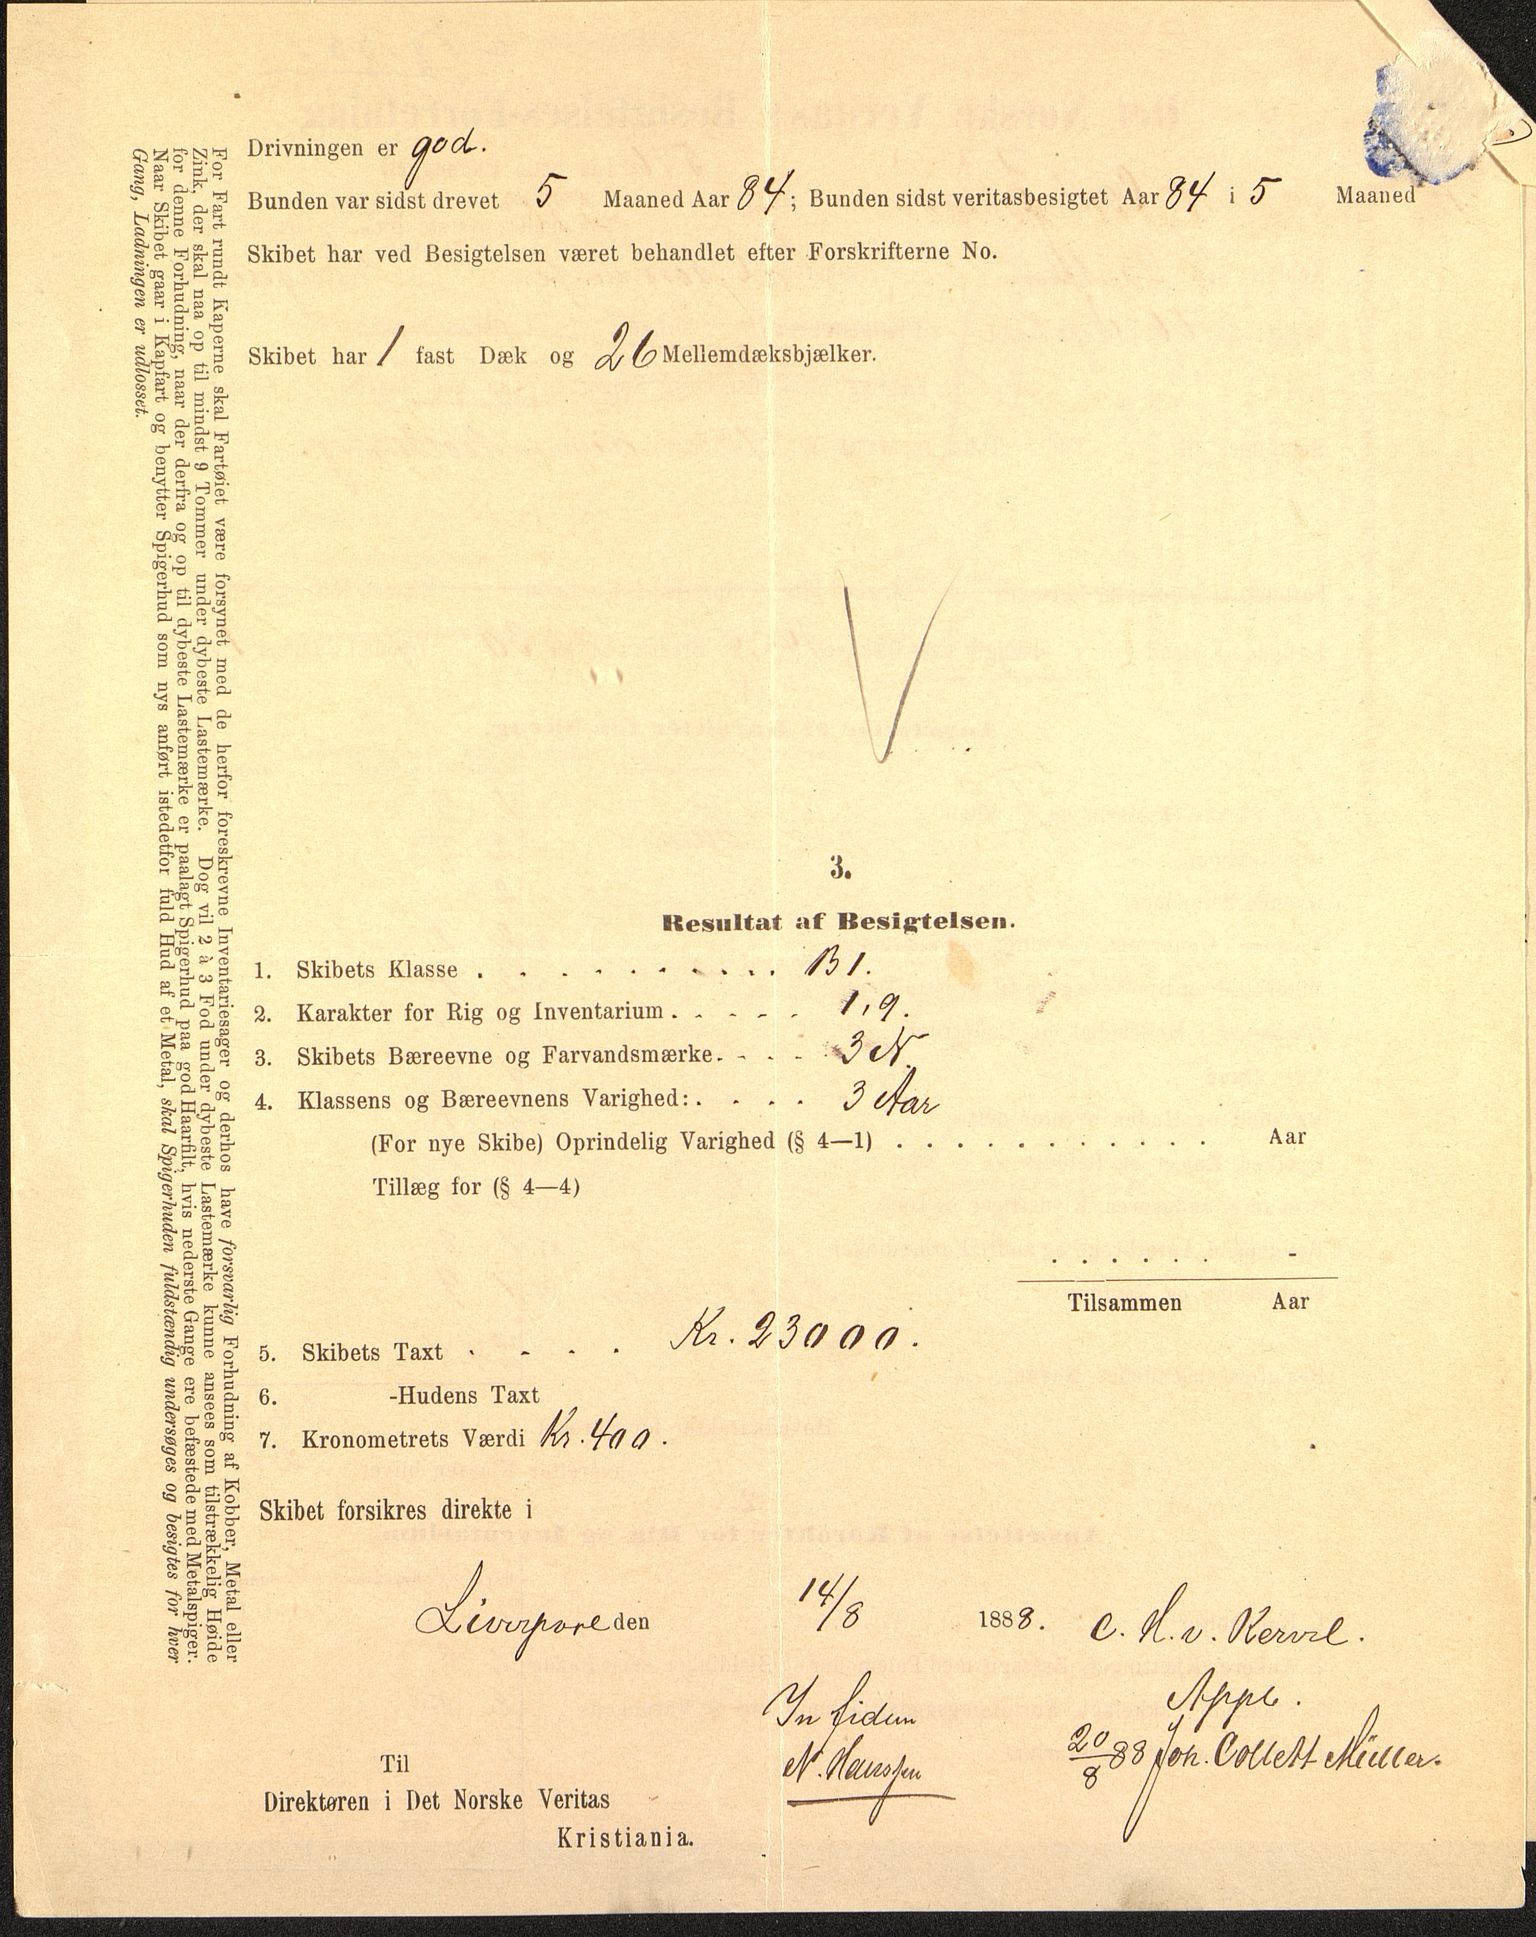 Drivningen er god.
Bunden var sidst drevet 5 Maaned Aar 84; Bunden sidst veritasbesigtet Aar 84 i 5 Maaned
Skibet har ved Besigtelsen været behandlet efter Forskrifterne No.
Skibet har 1 fast Dæk og 26 Mellemdæksbjælker.
3.
Resultat af Besigtelsen.
1. Skibets Klasse . . . . . . . . . . B 1.
2. Karakter for Rig og Inventarium . . . . . 1,9.
3. Skibets Bæreevne og Farvandsmærke. . . . 3 N.
4. Klassens og Bæreevnens Varighed: . . . . 3 Aar
(For nye Skibe) Oprindelig Varighed (§ 4—1) . . . . . . . . . . . Aar
Tillæg for (§ 4—4)
. . . . . . -
Tilsammen Aar
5. Skibets Taxt . . . . Kr. 23000.
6. -Hudens Taxt
7. Kronometrets Værdi Kr. 400.
Skibet forsikres direkte i
Liverpool den 14/8 1888. C. H. v. Kervel.
In fidem Appb.
N. Hanssen 20/8 88 Joh. Collett Müller.
Til
Direktøren i Det Norske Veritas
Kristiania.
For Fart rundt Kaperne skal Fartøiet være forsynet med de herfor foreskrevne Inventariesager og derhos have forsvarlig Forhudning af Kobber, Metal eller
Zink, der skal naa op til mindst 9 Tommer under dybeste Lastemærke. Dog vil 2 à 3 Fod under dybeste Lastemærke kunne ansees som tilstrækkelig Høide
for denne Forhudning, naar der derfra og op til dybeste Lastemærke er paalagt Spigerhud paa god Haarfilt, hvis nederste Gange ere befæstede med Metalspiger.
Naar Skibet gaar i Kapfart og benytter Spigerhud som nys anført istedetfor fuld Hud af et Metal, skal Spigerhuden fuldstændig undersøges og besigtes for hver
Gang, Ladningen er udlosset.